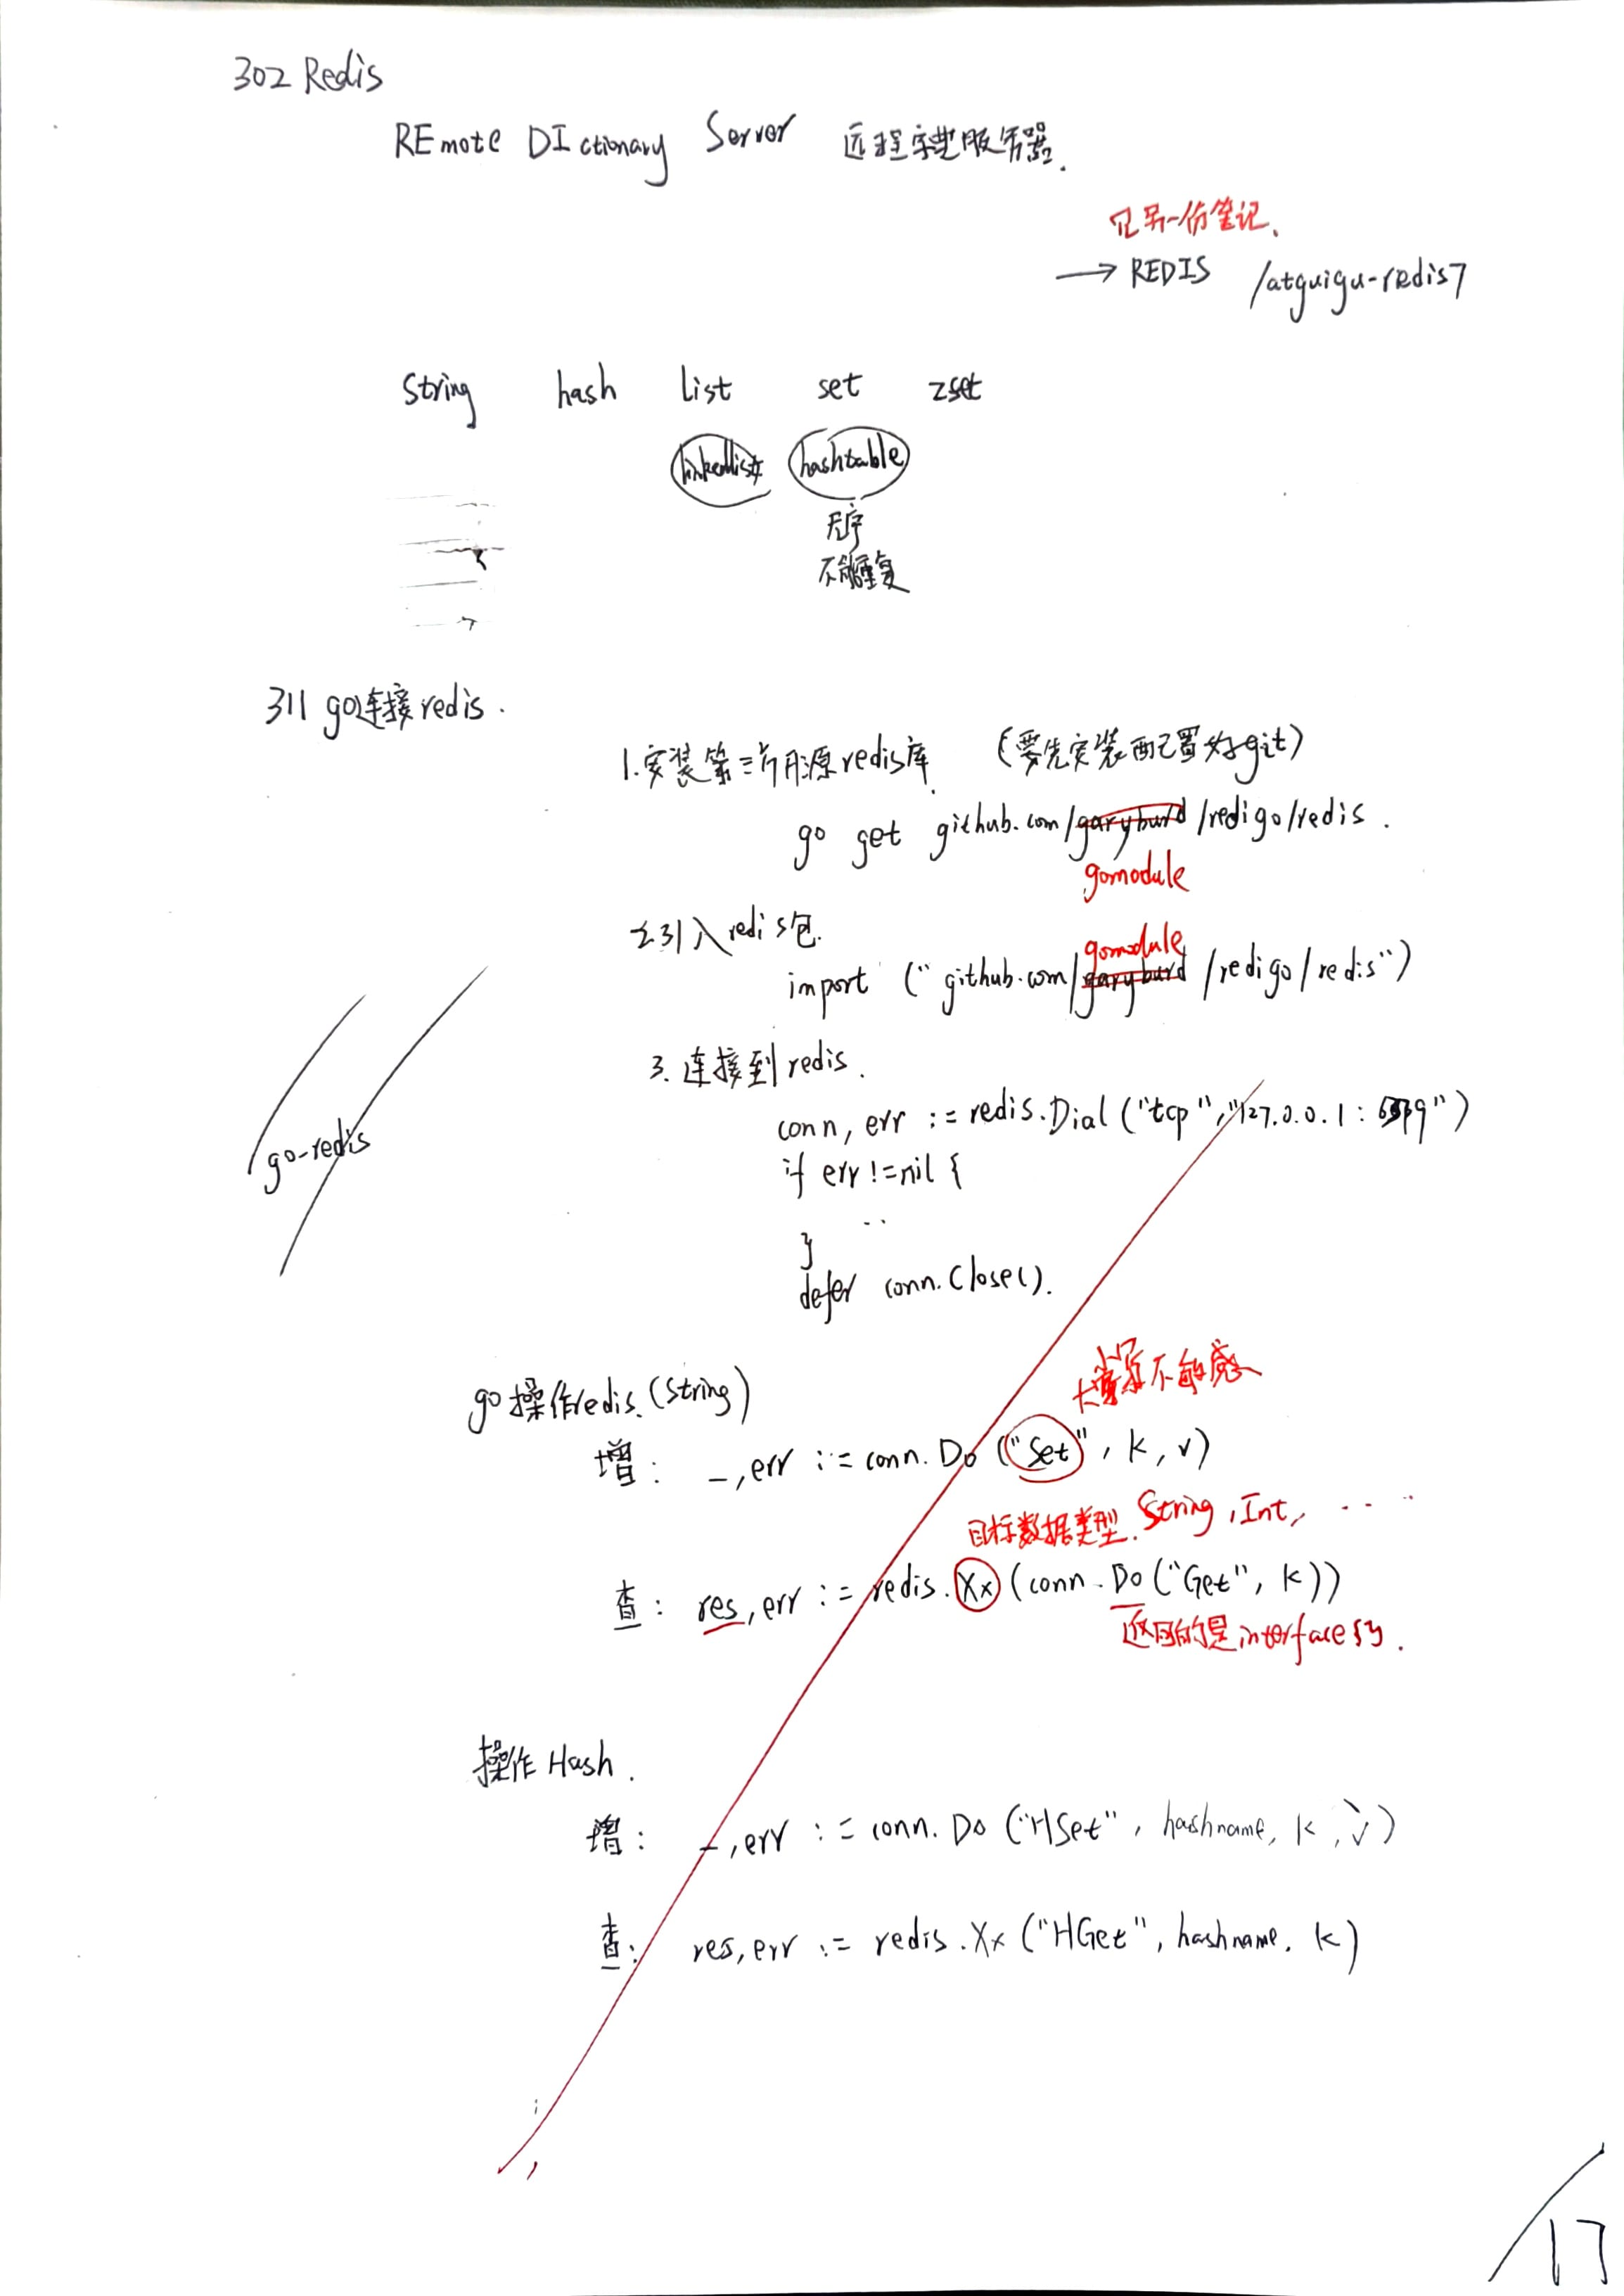 302 Redis
REmote DIctionary Server 远程字典服务器.
见另一份笔记、
→ REDIS /atguigu-redis7
String hash list set zset
linkedlist hashtable
无序
不能重复
311 go连接redis.
1.安装第三方开源redis库. (要先安装配置好git)
go get github.com/garyburd/redigo/redis.
gomodule
2.引入redis包.
gomodule
import ("github.com/garyburd/redigo/redis")
3. 连接到redis.
conn, err := redis.Dial ("tcp", "127.0.0.1:6379")
go-redis
if err!=nil {
..
}
defer conn.Close().
大小写不敏感
go操作redis.(String)
增: _,err := conn.Do ("Set", k, v)
目标数据类型. String, Int, ....
查: res,err := redis.Xx (conn.Do ("Get", k))
返回的是interface{}.
操作Hash.
增: _,err := conn.Do ("HSet", hashname, k, v)
查: res,err := redis.Xx ("HGet", hashname, k)
17